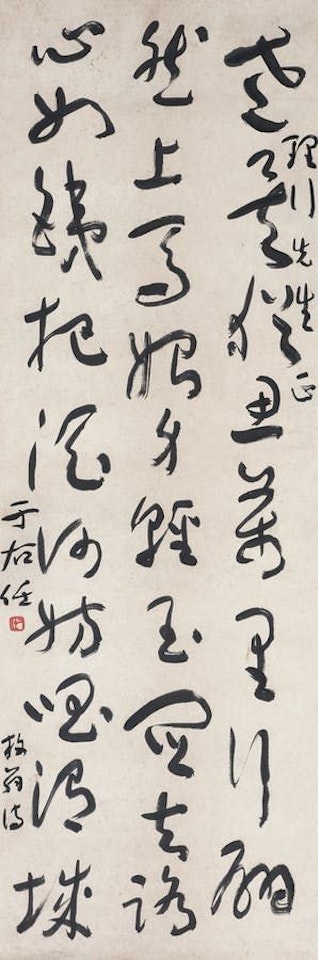 老矣猶思萬里行翩
然上馬始身輕玉關去路
心如銕把酒何妨唱渭城
理行先生正
放翁詩
于右任